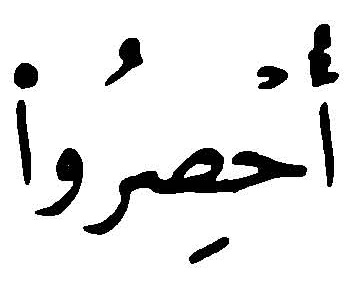 أُحۡصِرُواْ